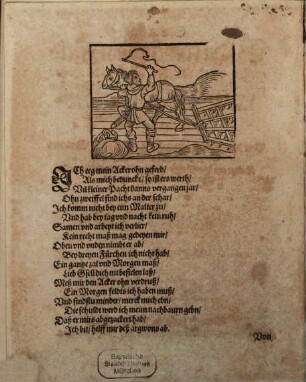 ICh eeg mein Acker ohn geferd/
Als mich beduncke/ so ists werth/
Vil kleiner Pacht dann vergangen jar/
Ohn zweiffel find ichs an der schar/
Ich komm nicht bey eim Malter zu/
Vnd hab bey tag vnd nacht kein ruh/
Samen vnd arbeyt ich verlier/
Kein recht maß mag gedeyen mir/
Oben vnd vnden nimbt er ab/
Bey dreyen Fürchen ich nicht hab/
Ein gantze zal vnd Morgen maß/
Lieb Gsell dich nit befelen laß/
Meß mir den Acker ohn verdruß/
Ein Morgen felds ich haben muß/
Vnd find ju minder/ merck mich ebn/
Die schuldt werd ich meim nachbaurn gebn/
Daß er mirs abgezackert hab/
Ich bit/ helff mir deß argwons ab.
Von
Bayerische
Staatsbibliothek
München